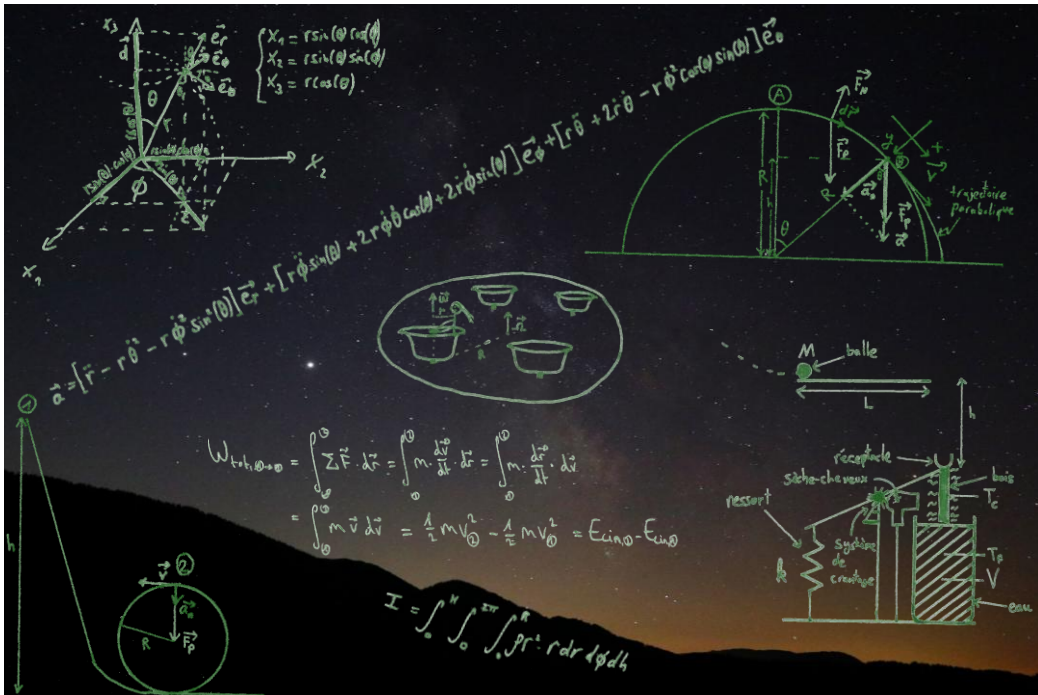 x₃
d⃗
e⃗r
e⃗ϕ
e⃗θ
θ
r
rcos(θ)
ϕ
x₂
x₁
{ x₁ = rsin(θ)cos(ϕ)
x₂ = rsin(θ)sin(ϕ)
x₃ = rcos(θ)
a⃗ = [r̈ - rθ̇² - rϕ̇² sin²(θ)]e⃗r + [rϕ̈ sin(θ) + 2rϕ̇θ̇ cos(θ) + 2ṙϕ̇ sin(θ)]e⃗ϕ + [rθ̈ + 2ṙθ̇ - rϕ̇² cos(θ) sin(θ)]e⃗θ
A
F⃗N
dr⃗
F⃗p
y
+
v⃗
R
h
θ
a⃗n
F⃗p
a⃗
trajectoire
parabolique
ω⃗
r
R
Ω⃗
M
balle
L
h
réceptacle
bois
Tc
sèche-cheveux
ressort
k
système
de
crantage
Tf
V
eau
1
h
2
v⃗
a⃗n
F⃗p
R
Wtot,①→② = ∫①② ΣF⃗ · dr⃗ = ∫①② m · dv⃗/dt · dr⃗ = ∫①② m · dr⃗/dt · dv⃗
= ∫①② m v⃗ dv⃗ = ½ mv②² - ½ mv①² = Ecin② - Ecin①
I = ∫₀ᴴ ∫₀²π ∫₀ᴿ ρr² · r dr dϕ dh